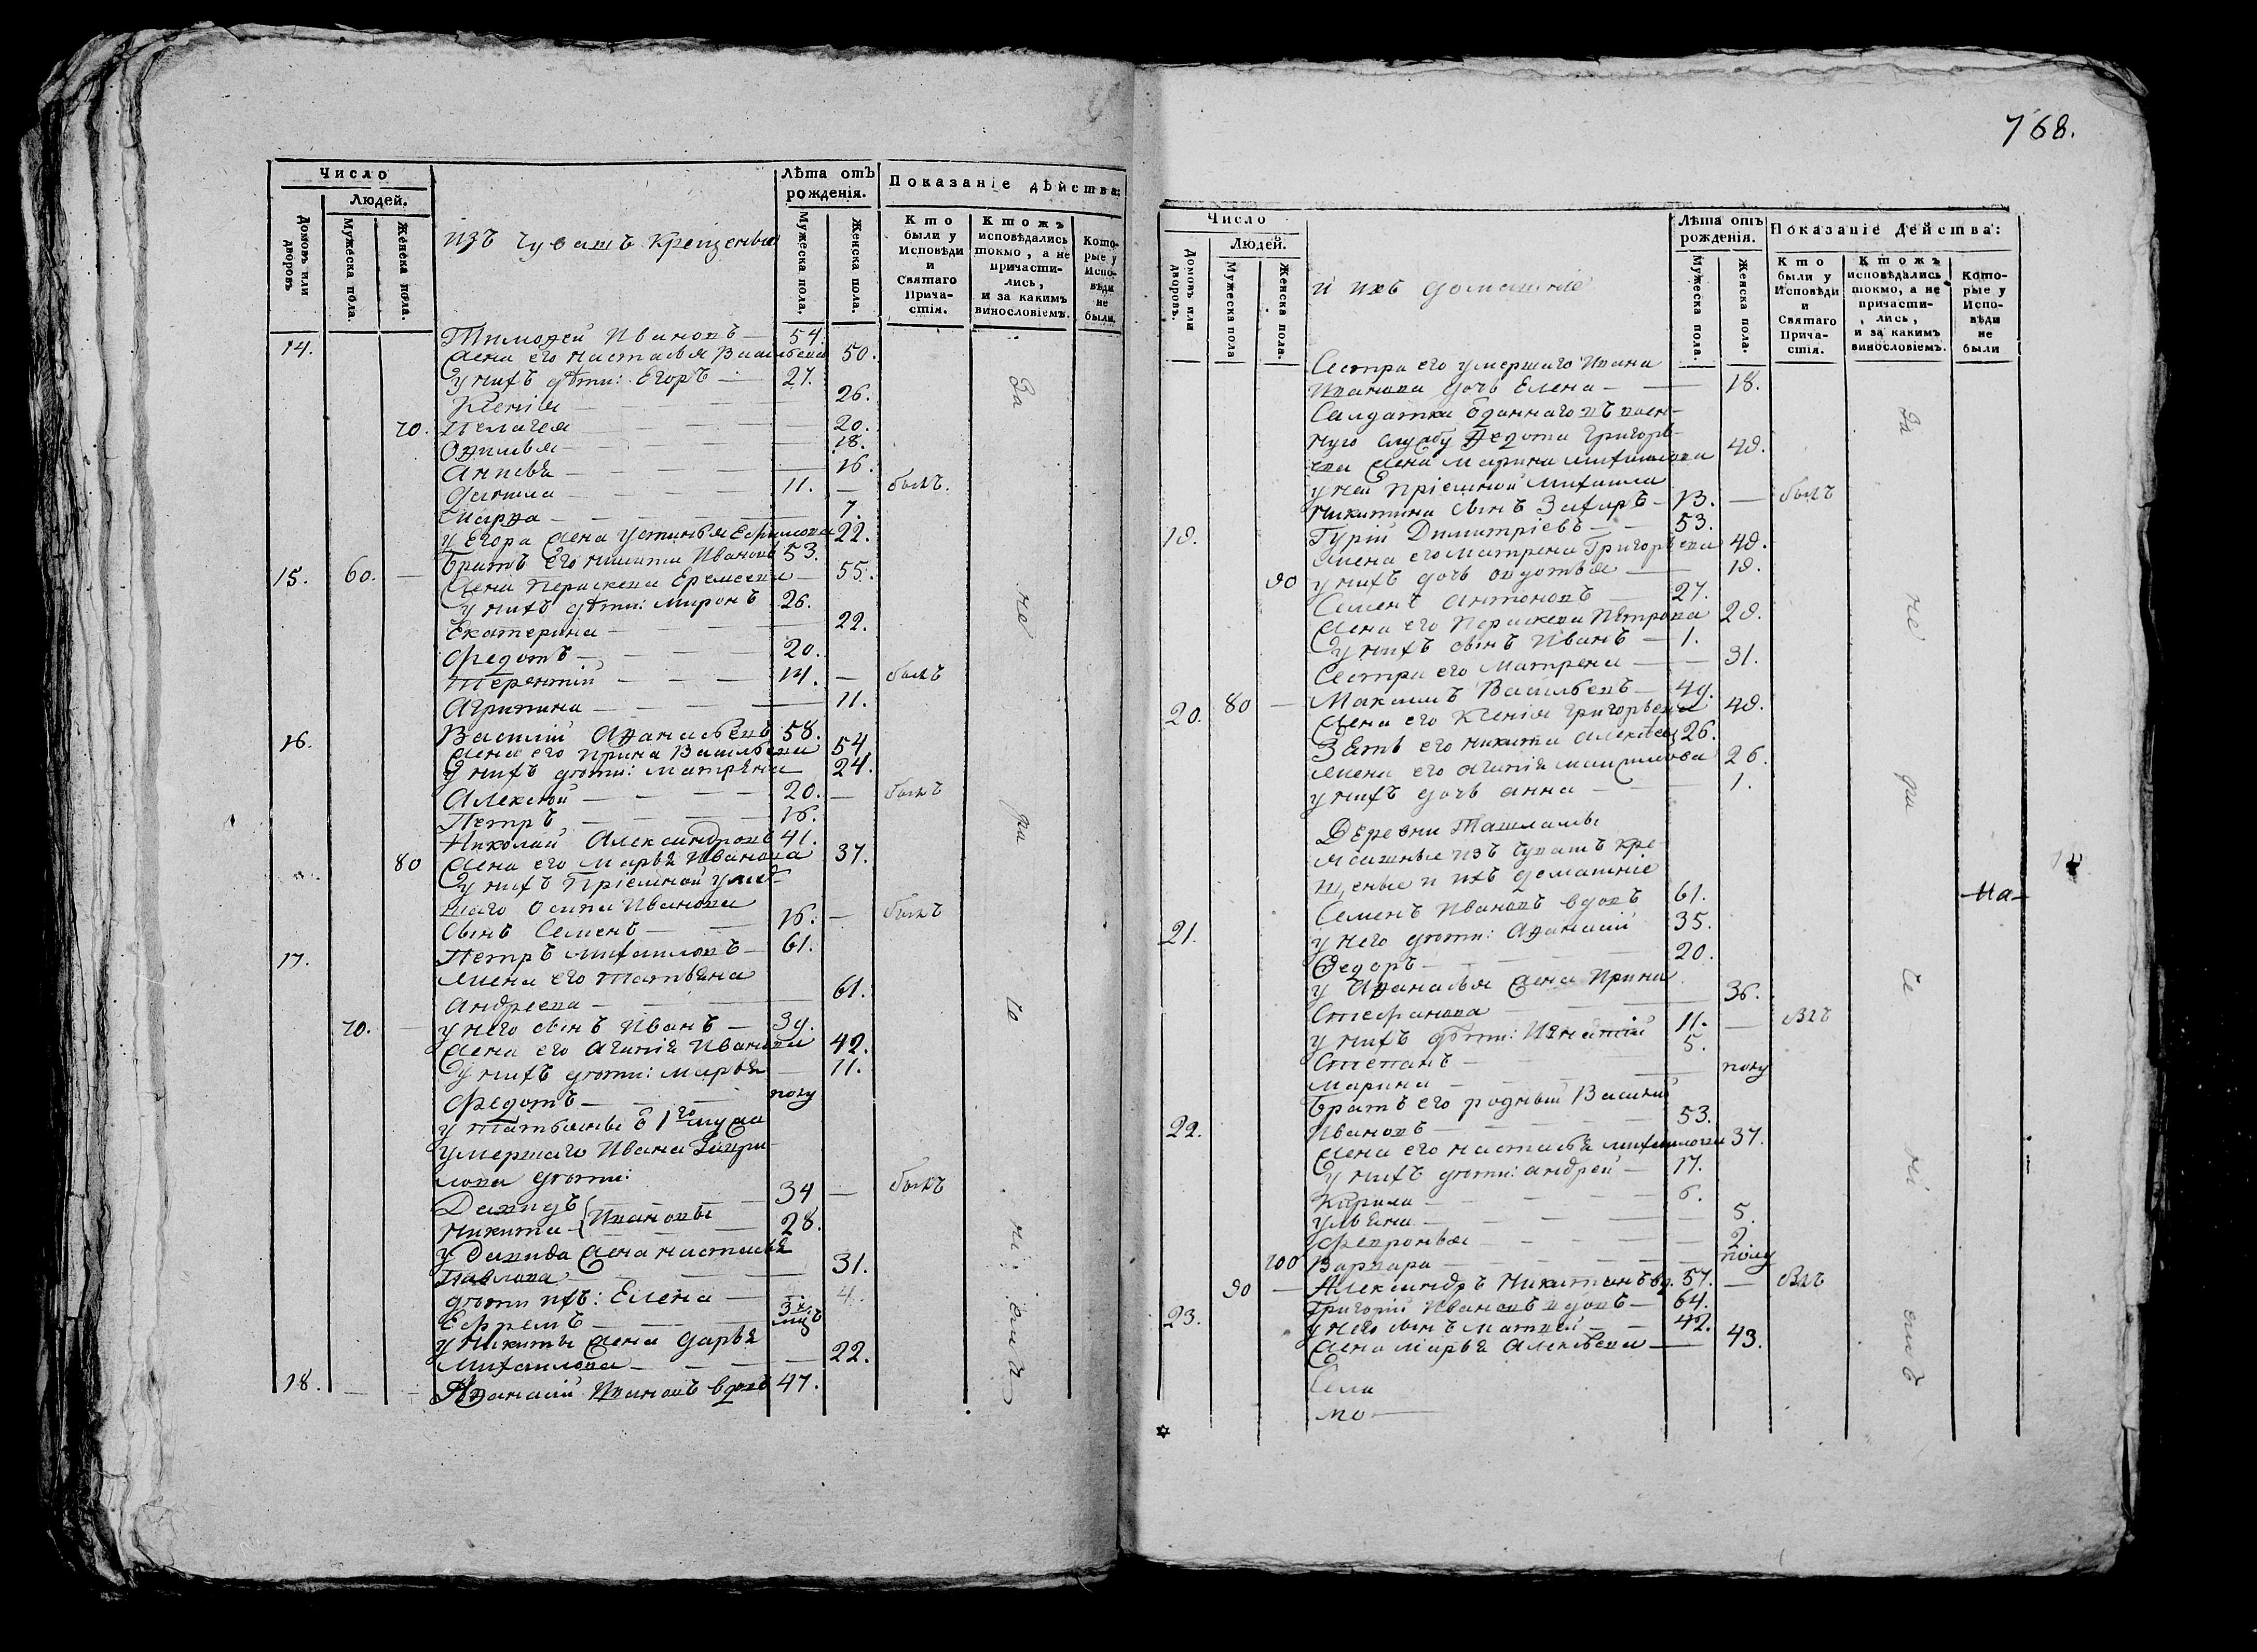 Число
Людей.
Домовъ или дворовъ
Мужеска пола.
Женска пола.
изъ Чувашъ Крещеныя
Лѣта отъ рожденія.
Мужеска пола,
Женска пола.
Показаніе дѣйства:
Кто были у Исповѣди и Святаго Прича-стія.
Ктожъ исповѣдались токмо, а не причасти-лись, и за какимъ винословіемъ.
Кото-рые у Испо-вѣди не были.
14. Тимофей Ивановъ — 54.
жена его Настасья Васильева 50.
у нихъ дѣти: Егоръ — 27.
Ксенія — 26.
70. Пелагея — 20.
18.
16.
Данила — 11. — былъ.
Марфа — 7.
у Егора жена Устинья Ефимова 22.
Братъ его Никита Ивановъ 53.
15. 60. — жена Параскева Еремеева — 55.
у нихъ дѣти: Миронъ 26.
Екатерина — 22.
Федотъ — 20.
Терентій — 14. — былъ
Агрипина — 11.
16. Василій Афанасьевъ 58.
жена его Ирина Васильева 54
у нихъ дѣти: Матрена 24.
Алексей — 20. — былъ
Петръ — 16.
Николай Александровъ 41.
80 жена его Марья Иванова 37.
у нихъ Пріемной умер-
шаго Осипа Иванова
сынъ Семенъ — 16. — былъ
17. Петръ Михайловъ — 61.
жена его Татьяна
Андреева — 61.
70. — у него сынъ Иванъ — 39.
жена его Агапія Иванова 42.
у нихъ дѣти: Марья — 11.
Федотъ — полу
у Татьяны б 1го мужа
умершаго Ивана Гаври-
лова дѣти:
Давидъ 34 — былъ
Никита — Ивановы — 28.
у Давида жена Настасья
Павлова — 31.
дѣти ихъ: Елена — 4.
Ефремъ — 3х мцъ
у Никиты жена Дарья
Михайлова — 22.
18. — Афанасій Ивановъ вдовъ 47.
За не ра че ні емъ
768.
Число
Людей.
Домовъ или дворовъ.
Мужеска пола
Женска пола.
и ихъ домашніе
Лѣта отъ рожденія.
Мужеска пола.
Женска пола.
Показаніе Дейсства:
Кто были у Исповѣди и Святаго Прича-стія.
Ктожъ исповѣдались токмо, а не причасти-лись, и за какимъ винословіемъ.
Кото-рые у Испо-вѣди не были
Сестра его умершаго Ивана
Иванова дочь Елена — 18.
Салдатка отданнаго въ воен-
ную службу Федота Григорь-
ева жена Марина Михайлова 49.
у ней Пріемной Михаила
Никитина сынъ Захаръ — 13. — былъ
19. Гурій Димитріевъ — 53.
жена его Матрена Григорьева 49.
90 у нихъ дочь Авдотья — 19.
Семенъ Антоновъ — 27.
жена его Параскева Петрова 29.
у нихъ сынъ Иванъ — 1.
Сестра его Матрена — 31.
20. 80 — Максимъ Васильевъ — 49.
жена его Ксенія Григорьева 49.
Зять его Никита Алексеев 26.
жена его Агапія Максимова 26.
у нихъ дочь Анна — 1.
Деревни Ташламы
Ясашные изъ Чувашъ кре-
щеные и ихъ домашніе
Семенъ Ивановъ вдовъ 61.
21. у него дѣти: Афанасій 35.
Федоръ — 20.
у Афанасья жена Ирина
Стефанова — 36.
у нихъ дѣти: Игнатій 11. — былъ
Степанъ — 5.
Марина — полу
Братъ его родный Василій
22. Ивановъ — 53.
жена его Настасья Михайлова 37.
у нихъ дѣти: Андрей — 17.
Кирила — 6.
Ульяна — 5.
Февронья — 2
100 Варвара — полу
90 — Александръ Никитинъ вд. 57. — былъ
23. Григорій Ивановъ вдовъ — 64.
у него сынъ Матвей — 42.
жена Марья Алексеева — 43.
Села
мо —
За не ра че ні емъ
На-